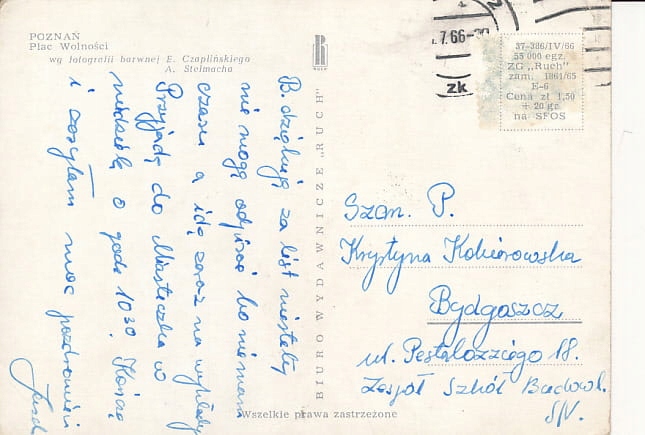 POZNAŃ
Plac Wolności
wg fotografii barwnej E. Czaplińskiego
A. Stelmacha
B. dziękuję za list niestety
nie mogę odpisać bo nie mam
czasu a idę zaraz na wykłady
Przyjadę do Miasteczka w
niedzielę o godz 10 30. Kończę
i zasyłam moc pozdrowień
BIURO WYDAWNICZE „RUCH"
RUCH
7.66
zk
37-386/IV/66
55 000 egz.
ZG „Ruch"
zam. 1861/65
E-6
Cena zł 1,50
+ 20 gr
na SFOS
Szan. P.
Krystyna Kobierowska
Bydgoszcz
ul. Pestalozziego 18.
Zespół Szkół Budowl.
Wszelkie prawa zastrzeżone